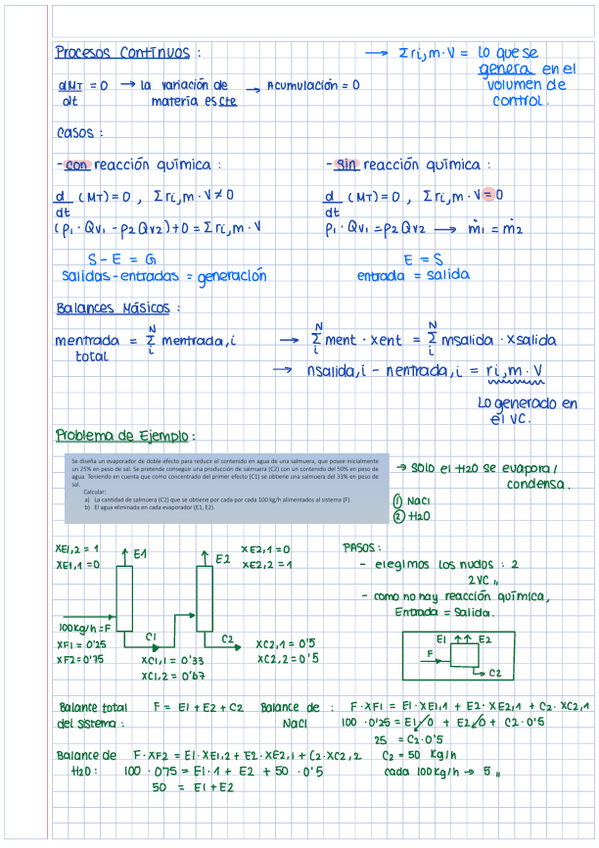 Procesos Continuos :
→ Σri,m·V = lo que se
genera en el
volumen de
control.
dMT/dt = 0 → la variación de
materia es cte
→ Acumulación = 0
casos :
- con reacción química :
d/dt (MT)=0 , Σri,m·V ≠ 0
(ρ1·Qv1 - ρ2Qv2)+0 = Σri,m·V
S - E = G
salidas - entradas = generación
- sin reacción química :
d/dt (MT)=0 , Σri,m·V = 0
ρ1·Qv1 = ρ2Qv2 → ṁ1 = ṁ2
E = S
entrada = salida
Balances Másicos :
mentrada total = Σ(i, N) mentrada,i → Σ(i, N) ment · xent = Σ(i, N) msalida · xsalida
→ nsalida,i - nentrada,i = ri,m · V
Lo generado en
el VC.
Problema de Ejemplo :
Se diseña un evaporador de doble efecto para reducir el contenido en agua de una salmuera, que posee inicialmente
un 25% en peso de sal. Se pretende conseguir una producción de salmuera (C2) con un contenido del 50% en peso de
agua. Teniendo en cuenta que como concentrado del primer efecto (C1) se obtiene una salmuera del 33% en peso de
sal.
Calcular:
a) La cantidad de salmuera (C2) que se obtiene por cada por cada 100 kg/h alimentados al sistema (F).
b) El agua eliminada en cada evaporador (E1, E2).
→ solo el H2O se evapora/
condensa.
① NaCl
② H2O
XE1,2 = 1
XE1,1 = 0
E1
E2
XE2,1 = 0
XE2,2 = 1
100Kg/h = F
XF1 = 0'25
XF2 = 0'75
C1
XC1,1 = 0'33
XC1,2 = 0'67
C2
XC2,1 = 0'5
XC2,2 = 0'5
PASOS :
- elegimos los nudos : 2
2VC "
- como no hay reacción química,
Entrada = Salida.
E1 E2
F
C2
Balance total
del sistema :
F = E1 + E2 + C2
Balance de
NaCl :
F·XF1 = E1·XE1,1 + E2·XE2,1 + C2·XC2,1
100 · 0'25 = E1·0 + E2·0 + C2·0'5
25 = C2·0'5
C2 = 50 Kg/h
cada 100Kg/h → 5 "
Balance de
H2O :
F·XF2 = E1·XE1,2 + E2·XE2,1 + C2·XC2,2
100 · 075 = E1·1 + E2 + 50 · 0'5
50 = E1+E2